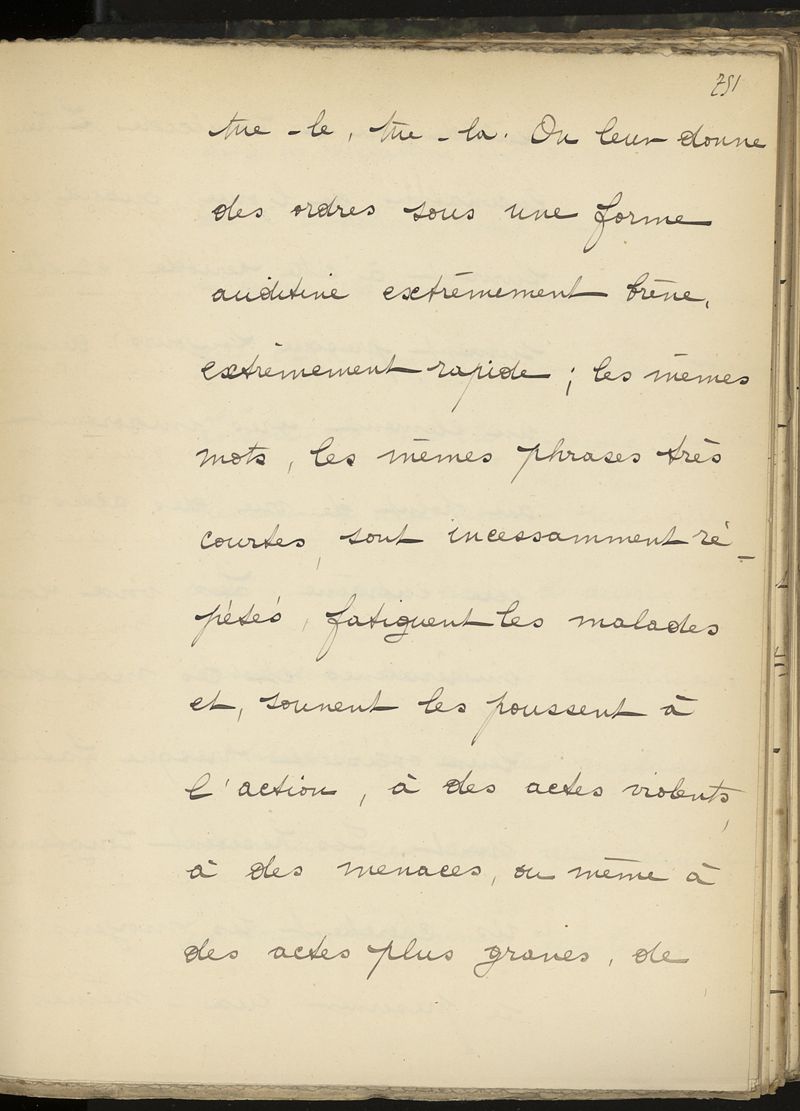 751
tue-le, tue-la. On leur donne
des ordres sous une forme
auditive extrêmement brève,
extrêmement rapide ; les mêmes
mots, les mêmes phrases très
courtes, sont incessamment ré-
pétés, fatiguent les malades
et, souvent les poussent à
l'action, à des actes violents,
à des menaces, ou même à
des actes plus graves, de